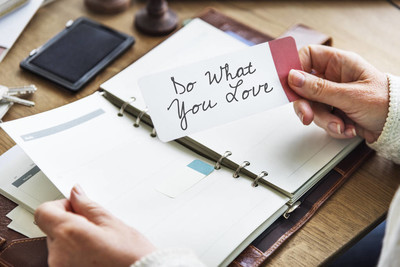 Do What
You Love